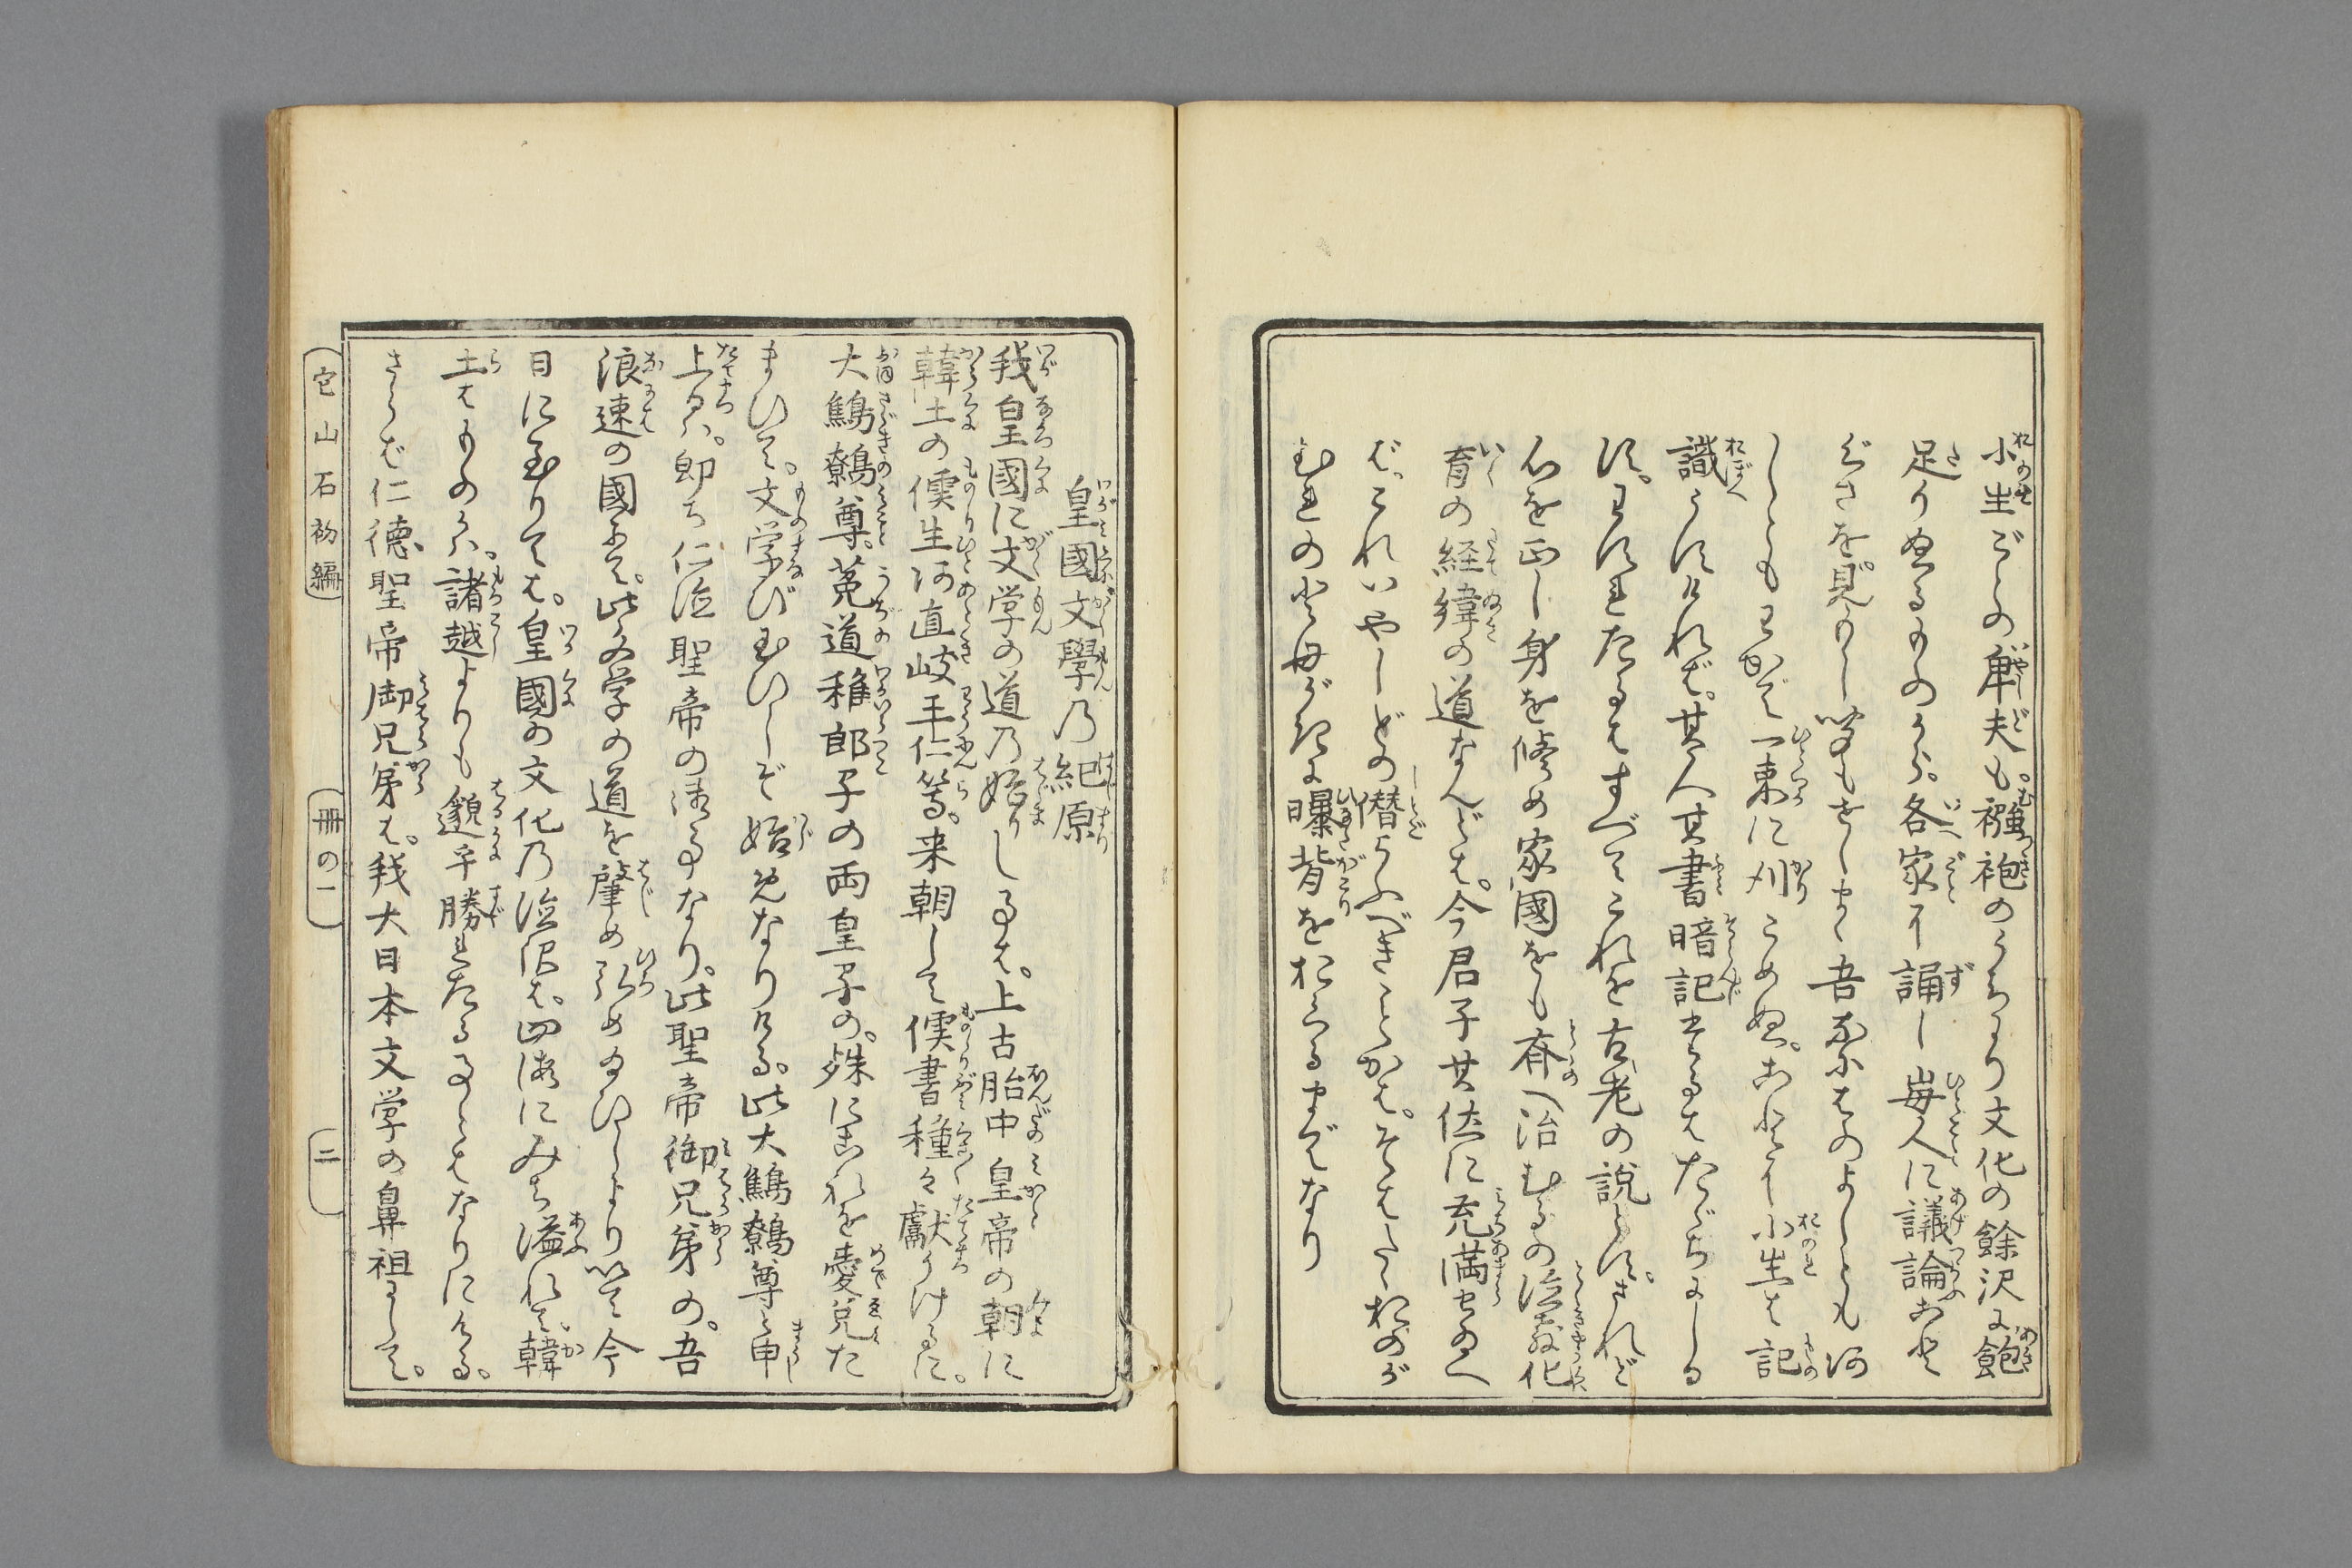 小生ごとの鄙夫も。襁褓のうちより文化の餘沢に飽
足りぬるものから。各家に誦し毎人に議論こと
ぐさを見もし聞もせしまゝ吾なにはのよしとも
しともわかで一束に刈こめぬ。こゝに小生は記
識うすければ。其人其書暗記せるはたゞちにしる
す。わすれたるはすべてこれを古老の説とす。されど
心を正し身を脩め家國をも斉へ治むるの
育の経緯の道なんどは。今君子其佳に充満せるへ
ば。これいやしどの僭よふべきことかは。そはたゝおのが
むれの
曝背をおくるまでなり
皇國文學乃紀原
我皇國に文学の道乃始りし事は。上古胎中皇帝の朝に
韓土の儒生阿直岐王仁等。来朝して儒書種々獻りけるに。
大鷦鷯尊。莵道稚郎子の両皇子の。殊にこれを愛兌た
まひて。文学び玉ひしぞ始めなりける。此大鷦鷯尊と申
上るハ。即ち仁徳聖帝の御事なり。此聖帝御兄弟の。吾
浪速の國にて。此文学の道を肇め弘め給ひしより以て今
日に至りては。皇國の文化乃徳沢は。四海にみち溢れて。韓
土はものかハ。諸越よりも邈乎勝れたる事とはなりにける。
さらば仁徳聖帝御兄弟は。我大日本文学の鼻祖にして。
它山石初編
冊の一
二